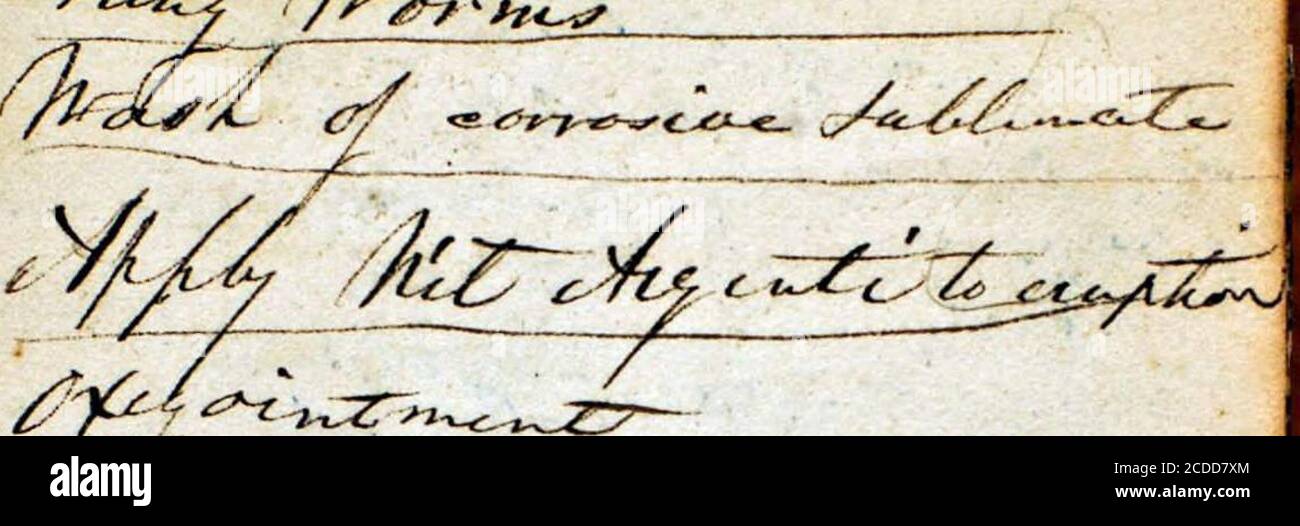 Ring Worms
Wash of corrosive sublimate
Apply Nit Argenti to eruption
Oxy ointment
alamy
Image ID: 2CDD7XM
www.alamy.com